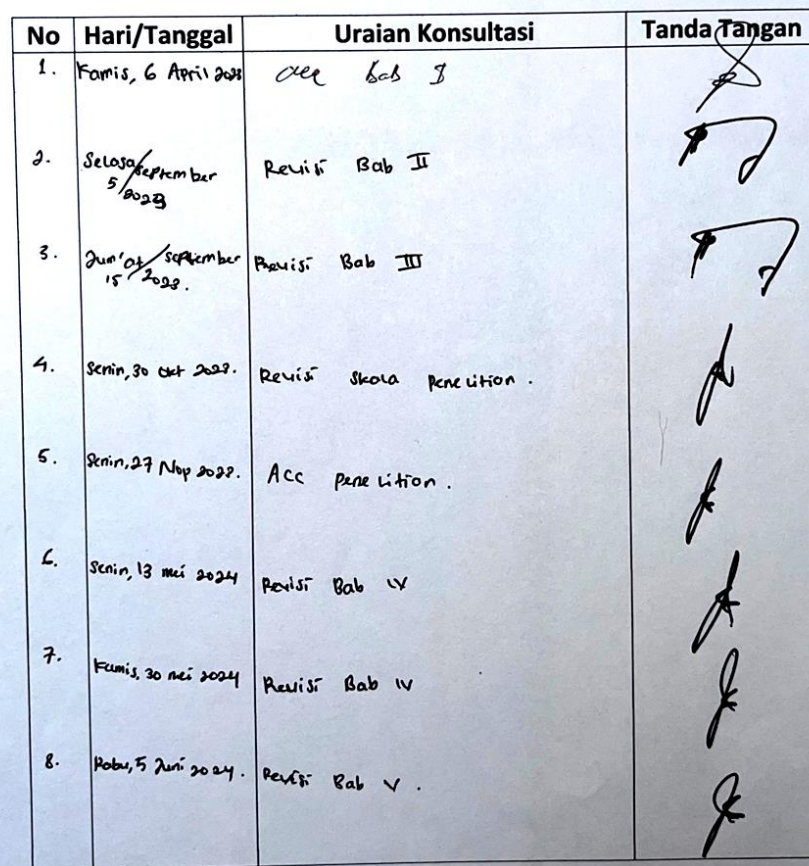 No Hari/Tanggal Uraian Konsultasi Tanda Tangan
1. Kamis, 6 April 2023 acc Bab I
2. Selasa/September
5/2023 Revisi Bab II
3. Jum'at/September
15/2023. Revisi Bab III
4. Senin, 30 Okt 2023. Revisi Skala Penelitian.
5. Senin, 27 Nop 2023. Acc Penelitian.
6. Senin, 13 mei 2024 Revisi Bab IV
7. Kamis, 30 mei 2024 Revisi Bab IV
8. Rabu, 5 Juni 2024. Revisi Bab V.